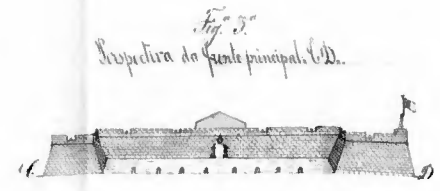 Fig.ª 3.ª
Perspectiva da frente principal. C.D..
C D